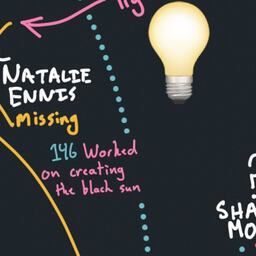 NATALIE
ENNIS
missing
146 Worked
on creating
the black sun
SHA
MO